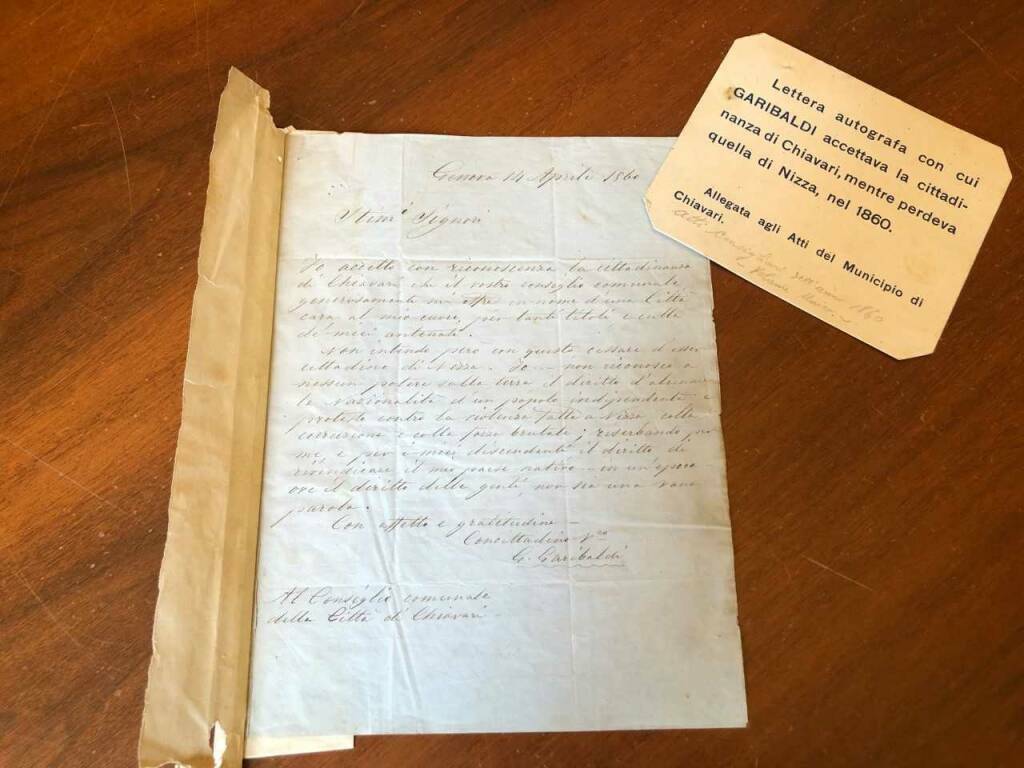 Genova 14 Aprile 1860
Stimi Signori
Io accetto con riconoscenza la cittadinanza
di Chiavari che il vostro consiglio comunale
generosamente mi offre in nome d'una Città
cara al mio cuore, per tanti titoli e culla
de' miei antenati.
Non intendo però con questo cessare d'esser
cittadino di Nizza. Io — non riconosco a
nessun potere sulla terra il diritto d'alienare
la nazionalità d'un popolo independente e
protesto contro la violenza fatta a Nizza colla
corruzione e colla forza brutale; riserbando per
me e per i miei discendenti il diritto di
rivindicare il mio paese nativo — in un'epoca
ove il diritto delle genti, non sia una vana
parola.
Con affetto e gratitudine —
Concittadino Vro
G. Garibaldi
Al Consiglio comunale
della Città di Chiavari
Lettera autografa con cui
GARIBALDI accettava la cittadi-
nanza di Chiavari, mentre perdeva
quella di Nizza, nel 1860.
Allegata agli Atti del Municipio di
Chiavari.
atti consiglieri 1860